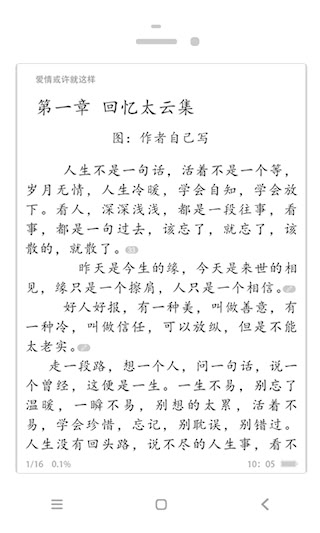 愛情或许就这样
第一章 回忆太云集
图：作者自己写
人生不是一句话，活着不是一个等，
岁月无情，人生冷暖，学会自知，学会放
下。看人，深深浅浅，都是一段往事，看
事，都是一句过去，该忘了，就忘了，该
散的，就散了。33
昨天是今生的缘，今天是来世的相
见，缘只是一个擦肩，人只是一个相信。
好人好报，有一种美，叫做善意，有
一种冷，叫做信任，可以放纵，但是不能
太老实。
走一段路，想一个人，问一句话，说一
个曾经，这便是一生。一生不易，别忘了
温暖，一瞬不易，别想的太累，活着不
易，学会珍惜，忘记，别耽误，别错过。
人生没有回头路，说不尽的人生事，看不
1/16 0.1% 10：05